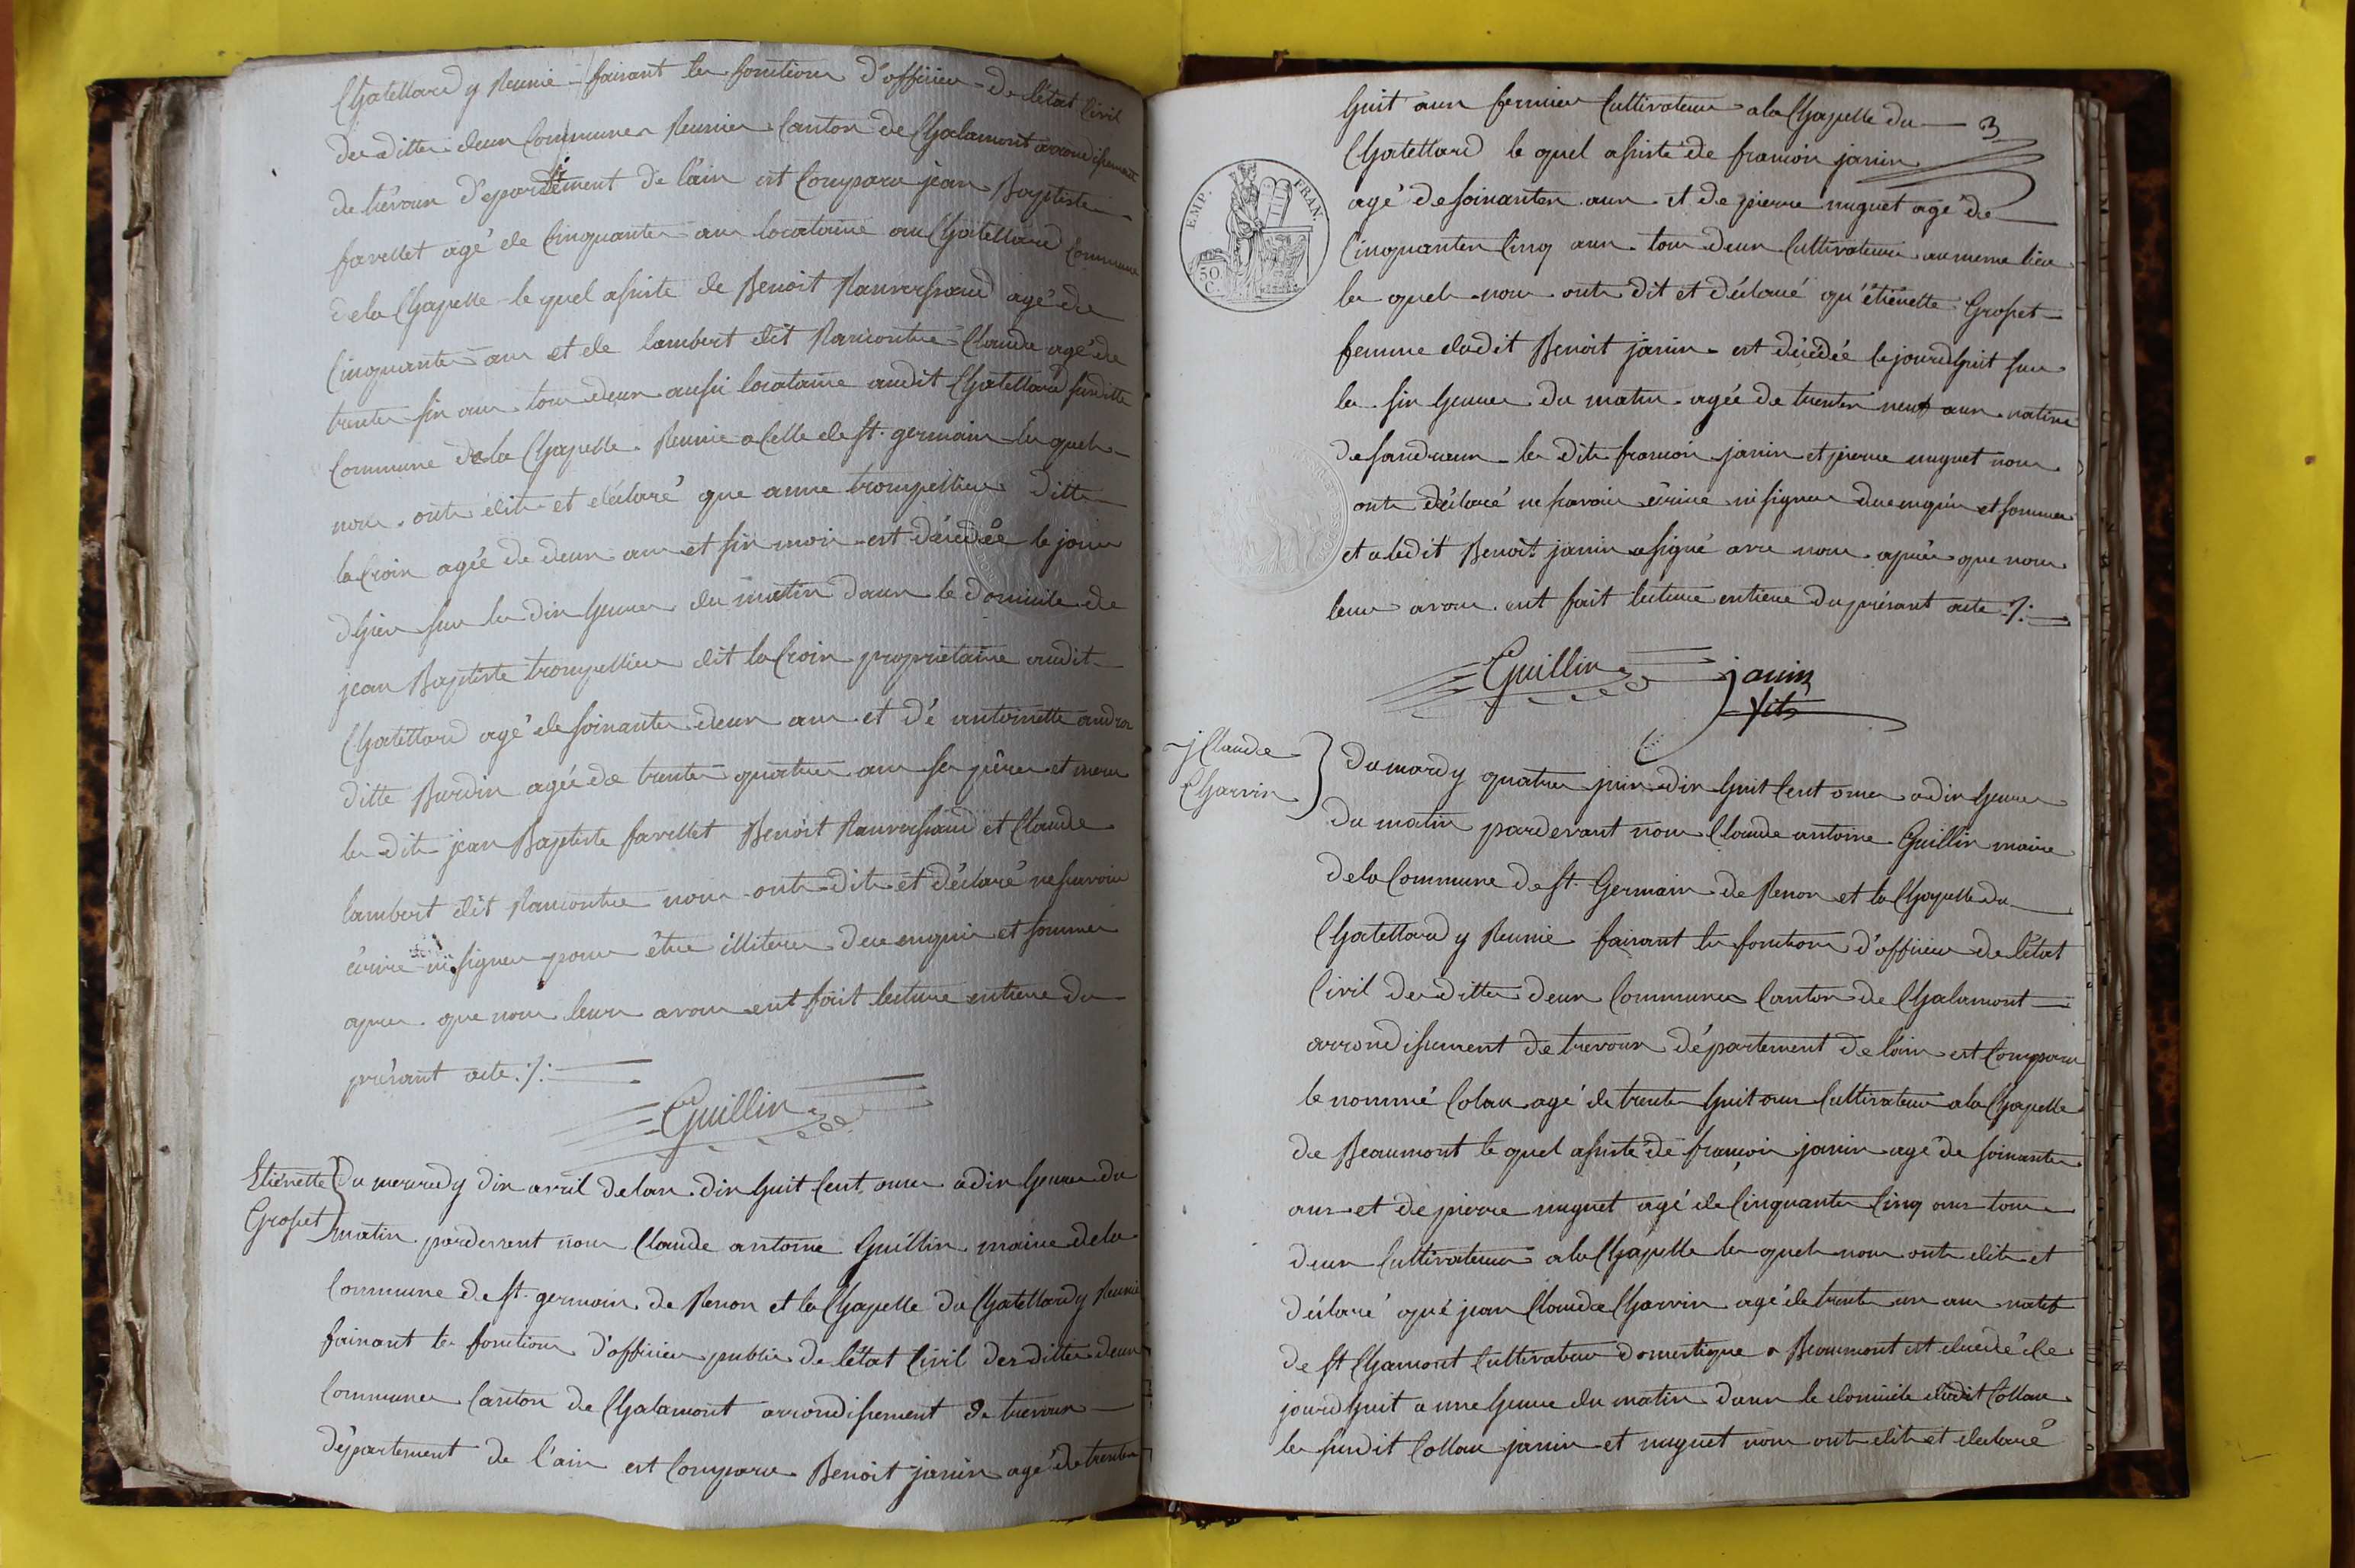 Chatellard y Reunie faisant les fonctions d'officier de l'état Civil
des dittes deux Communes Reunies Canton de Chalamont arrondissement
de trévoux département de l'ain est Comparu jean Baptiste
favellet agé de Cinquantes ans locataire au Chatellard Commune
de la Chapelle le quel assisté de Benoit Ranverssaud agé de
Cinquantes ans et de lambert dit Rancontre Claude agé de
trente six ans tous deux aussi locataire audit Chatellard susditte
Commune de la Chapelle Reunie a Celle de st. germain les quels
nous onts dits et déclaré que anne trompellier ditte
la Croix agée de deux ans et six mois est décédée le jour
dhier sur les dix heures du matin dans le domicile de
jean Baptiste trompellier dit la Croix propriétaire audit
Chatellard agé de soixantes deux ans et dé antoinette
ditte Burdin agée de trentes quatres ans ses péres et mere
les dits jean Baptiste favellet Benoit Ranverssaud et Claude
lambert dit Rancontre nous onts dits et déclaré ne savoir
écrire ni signer pour être illiteres de ce enquis et sommés
apres que nous leurs avons ent fait lecture entiere du
présant acte ./.
Guillin
Etiénette
Grosset
Du mercredy dix avril de lan dix huit Cent onze a dix heures du
matin pardevant nous Claude antoine Guillin maire de la
Commune de st. germain de Renon et la Chapelle du Chatellard y Reunie
faisant les fonctions d'officier public de l'état Civil des dittes deux
Communes Canton de Chalamont arrondissement de trevoux
département de l'ain est Comparu Benoit janin agé de trentes
huit ans fermier Cultivateur a la Chapelle du 3
Chatellard le quel assisté de francois janin
agé de soixantes ans et de pierre nuguet agé de
Cinquantes Cinq ans tous deux Cultivateurs au meme lieu
les quels nous onts dit et déclaré qu'étiénette Grosset
femme dudit Benoit janin est décédée le jourdhuit sur
les six heures du matin agée de trentes neuf ans native
de sandrans les dits francois janin et pierre nuguet nous
onts déclaré ne savoir écrire ni signer de ce enquis et sommés
et a ledit Benoit janin a signé avec nous après que nous
leurs avons ent fait lecture entiere du présant acte ./.
Guillin janin
fils
EMP. FRAN.
50 C.
j Claude
Charvin
Du mardy quatres juin dix huit Cent onze a dix heures
du matin pardevant nous Claude antoine Guillin maire
de la Commune de st. Germain de Renon et la Chapelle du
Chatellard y Reunie faisant les fonctions d'officier de l'état
Civil des dittes deux Communes Canton de Chalamont
arrondissement de trevoux département de l'ain est Comparu
le nommé Colau agé de trentes huit ans Cultivateur a la Chapelle
de Beaumont le quel assisté de francois janin agé de soixantes
ans et de pierre nuguet agé de Cinquantes Cinq ans tous
deux Cultivateurs a la Chapelle les quels nous onts dits et
déclaré qué jean Claude Charvin agé de trente un ans natif
de st Chamont Cultivateur domestique a Beaumont est décédé le
jourdhuit a une heure du matin dans le domicile dudit Collau
les susdit Collau janin et nuguet nous onts dits et déclaré